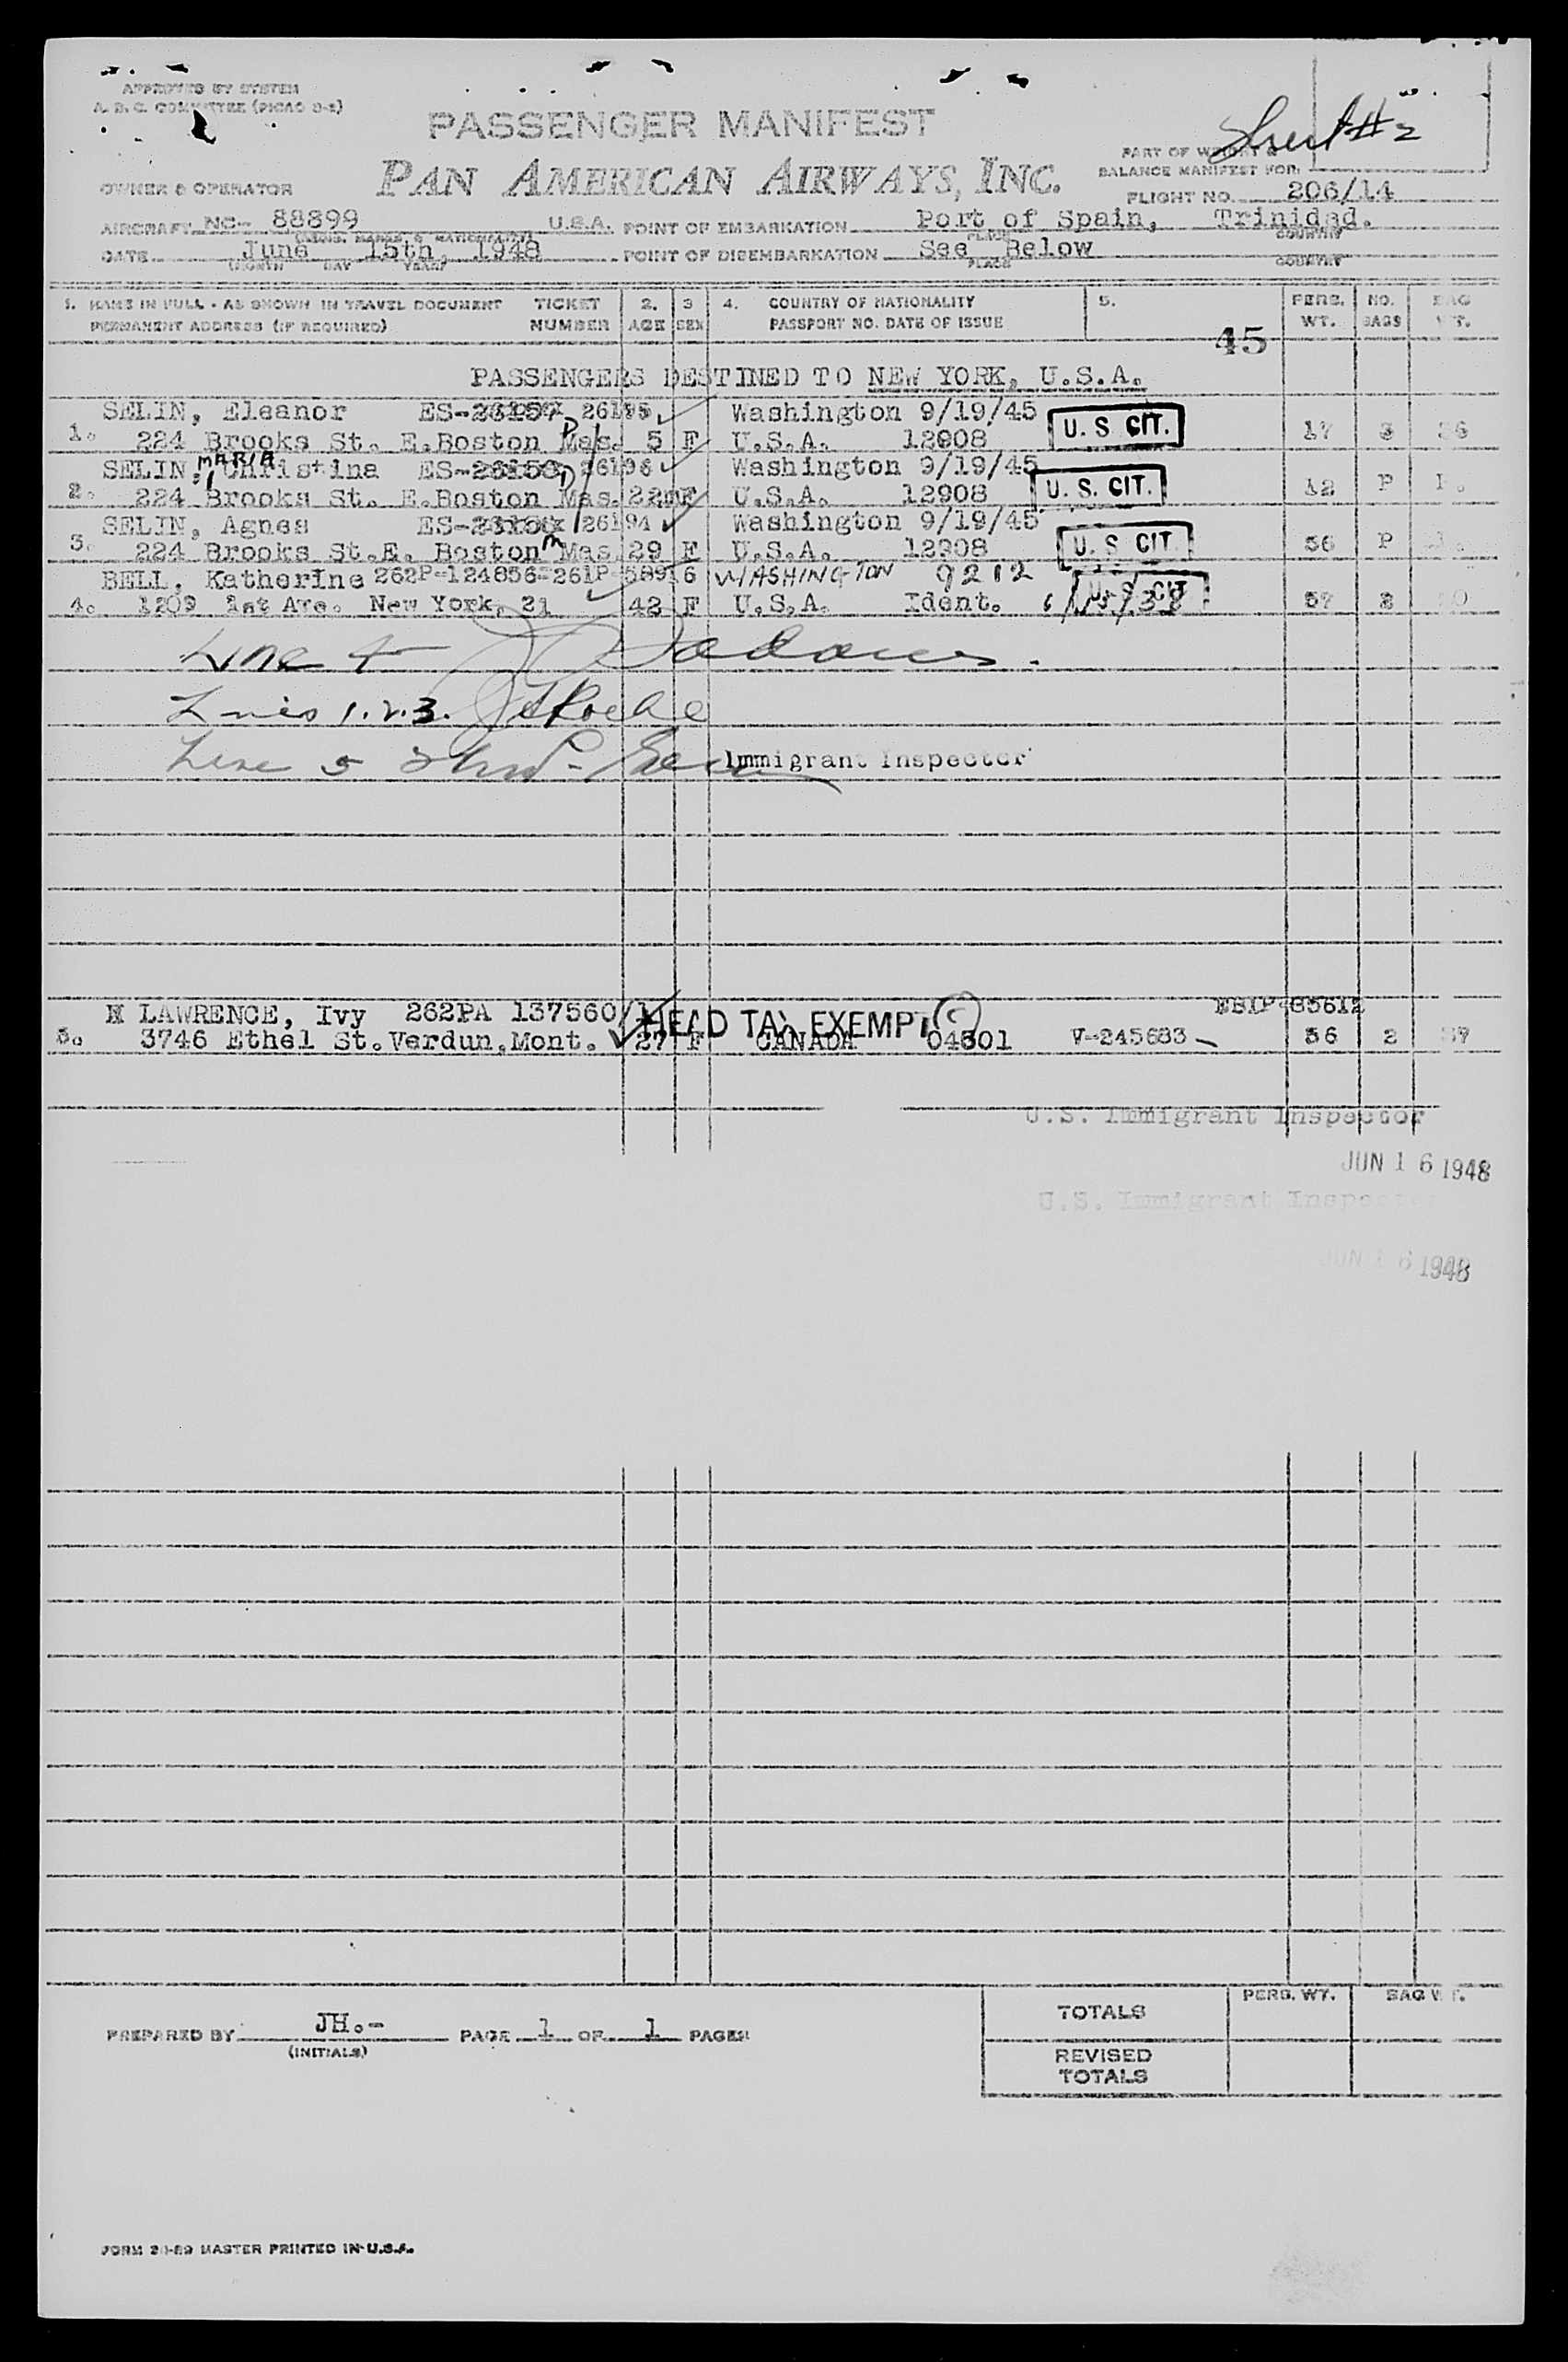 APPROVED BY SYSTEM
A. D. C. COMMITTEE (PICAO 3-2)
Sheet #2
PASSENGER MANIFEST
PART OF WEIGHT &
BALANCE MANIFEST FOR:
PAN AMERICAN AIRWAYS, INC.
OWNER & OPERATOR
FLIGHT NO. 206/14
AIRCRAFT NC- 88899 U.S.A. POINT OF EMBARKATION Port of Spain, Trinidad.
PLACE COUNTRY
DATE June 15th, 1948 POINT OF DISEMBARKATION See Below
(MONTH DAY YEAR) PLACE COUNTRY
1. NAME IN FULL - AS SHOWN IN TRAVEL DOCUMENT TICKET 2. 3 4. COUNTRY OF NATIONALITY 5. PERS. NO. BAG
PERMANENT ADDRESS (IF REQUIRED) NUMBER AGE SEX PASSPORT NO. DATE OF ISSUE WT. BAGS WT.
45
PASSENGERS DESTINED TO NEW YORK, U.S.A.
SELIN, Eleanor ES-26157 26195 Washington 9/19/45
1. 224 Brooks St. E.Boston Mas. 5 F U.S.A. 12908 U. S CIT. 17 3
MARIA
SELIN, Christina ES- 26196 Washington 9/19/45
2. 224 Brooks St. E.Boston Mas. 22m F U.S.A. 12908 U. S. CIT. 12 P
SELIN, Agnes ES- 26194 Washington 9/19/45
3. 224 Brooks St.E. Boston Mas. 29 F U.S.A. 12908 U. S CIT. 56 P
BELL, Katherine 262P-124856-261P-58916 WASHINGTON 9212
4. 1209 1st Ave. New York, 21 42 F U.S.A. Ident. U. S. CIT 57 2
Line 4
Lines 1.2.3.
Line 5 Immigrant Inspector
LAWRENCE, Ivy 262PA 137560/1 HEAD TAX EXEMPT EBIP-85612
5. 3746 Ethel St.Verdun,Mont. 27 F CANADA 04501 V-245683 56 2
U.S. Immigrant Inspector
JUN 16 1948
U.S. Immigrant Inspector
JUN 16 1948
TOTALS PERS. WT. BAG WT.
PREPARED BY JH.- PAGE 1 OF 1 PAGES
(INITIALS)
REVISED
TOTALS
MASTER PRINTED IN U.S.A.